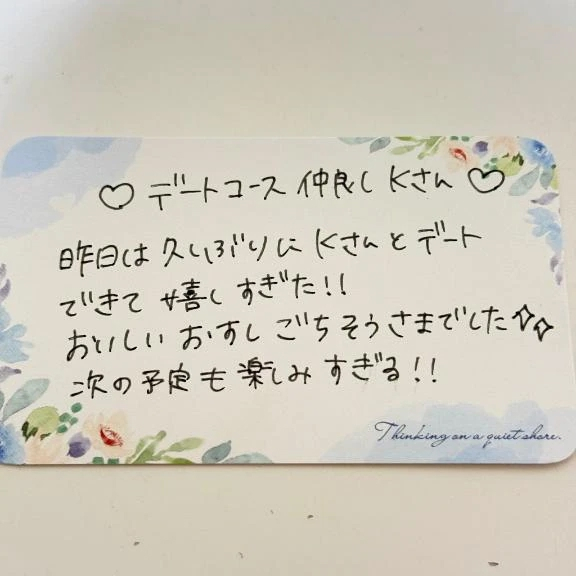 ♡ デートコース 仲良し Kさん ♡
昨日は 久しぶりに Kさんと デート
できて 嬉し すぎた!!
おいしい おすし ごちそうさまでした✧✧
次の予定も 楽しみ すぎる!!
Thinking on a quiet shore.